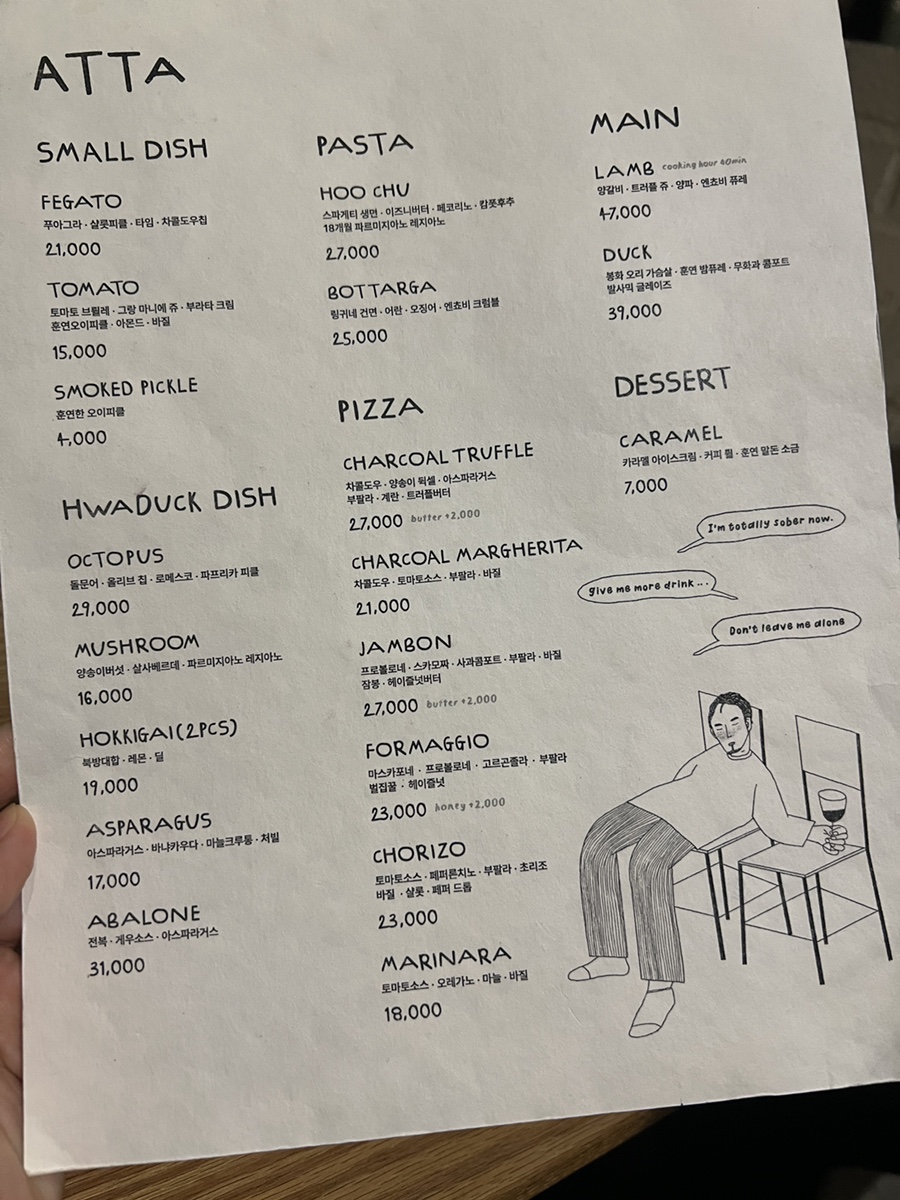 ATTA
SMALL DISH
FEGATO
푸아그라 · 샬롯피클 · 타임 · 차콜도우칩
21,000
TOMATO
토마토 브륄레 · 그랑 마니에 쥬 · 부라타 크림
훈연오이피클 · 아몬드 · 바질
15,000
SMOKED PICKLE
훈연한 오이피클
4,000
HWADUCK DISH
OCTOPUS
돌문어 · 올리브 칩 · 로메스코 · 파프리카 피클
29,000
MUSHROOM
양송이버섯 · 살사베르데 · 파르미지아노 레지아노
16,000
HOKKIGAI(2PCS)
북방대합 · 레몬 · 딜
19,000
ASPARAGUS
아스파라거스 · 바냐카우다 · 마늘크루통 · 처빌
17,000
ABALONE
전복 · 게우소스 · 아스파라거스
31,000
PASTA
HOO CHU
스파게티 생면 · 이즈니버터 · 페코리노 · 캄폿후추
18개월 파르미지아노 레지아노
27,000
BOTTARGA
링귀네 건면 · 어란 · 오징어 · 엔쵸비 크럼블
25,000
PIZZA
CHARCOAL TRUFFLE
차콜도우 · 양송이 뒥셀 · 아스파라거스
부팔라 · 계란 · 트러플버터
27,000 butter +2,000
CHARCOAL MARGHERITA
차콜도우 · 토마토소스 · 부팔라 · 바질
21,000
JAMBON
프로볼로네 · 스카모짜 · 사과콤포트 · 부팔라 · 바질
잠봉 · 헤이즐넛버터
27,000 butter +2,000
FORMAGGIO
마스카포네 · 프로볼로네 · 고르곤졸라 · 부팔라
벌집꿀 · 헤이즐넛
23,000 honey +2,000
CHORIZO
토마토소스 · 페퍼론치노 · 부팔라 · 초리조
바질 · 샬롯 · 페퍼 드롭
23,000
MARINARA
토마토소스 · 오레가노 · 마늘 · 바질
18,000
MAIN
LAMB cooking hour 40min
양갈비 · 트러플 쥬 · 양파 · 엔쵸비 퓨레
47,000
DUCK
봉화 오리 가슴살 · 훈연 밤퓨레 · 무화과 콤포트
발사믹 글레이즈
39,000
DESSERT
CARAMEL
카라멜 아이스크림 · 커피 튈 · 훈연 말돈 소금
7,000
I'm totally sober now.
give me more drink ...
Don't leave me alone